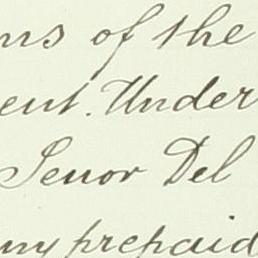 ns of the
ent. Under
Senor Del
ny prepaid